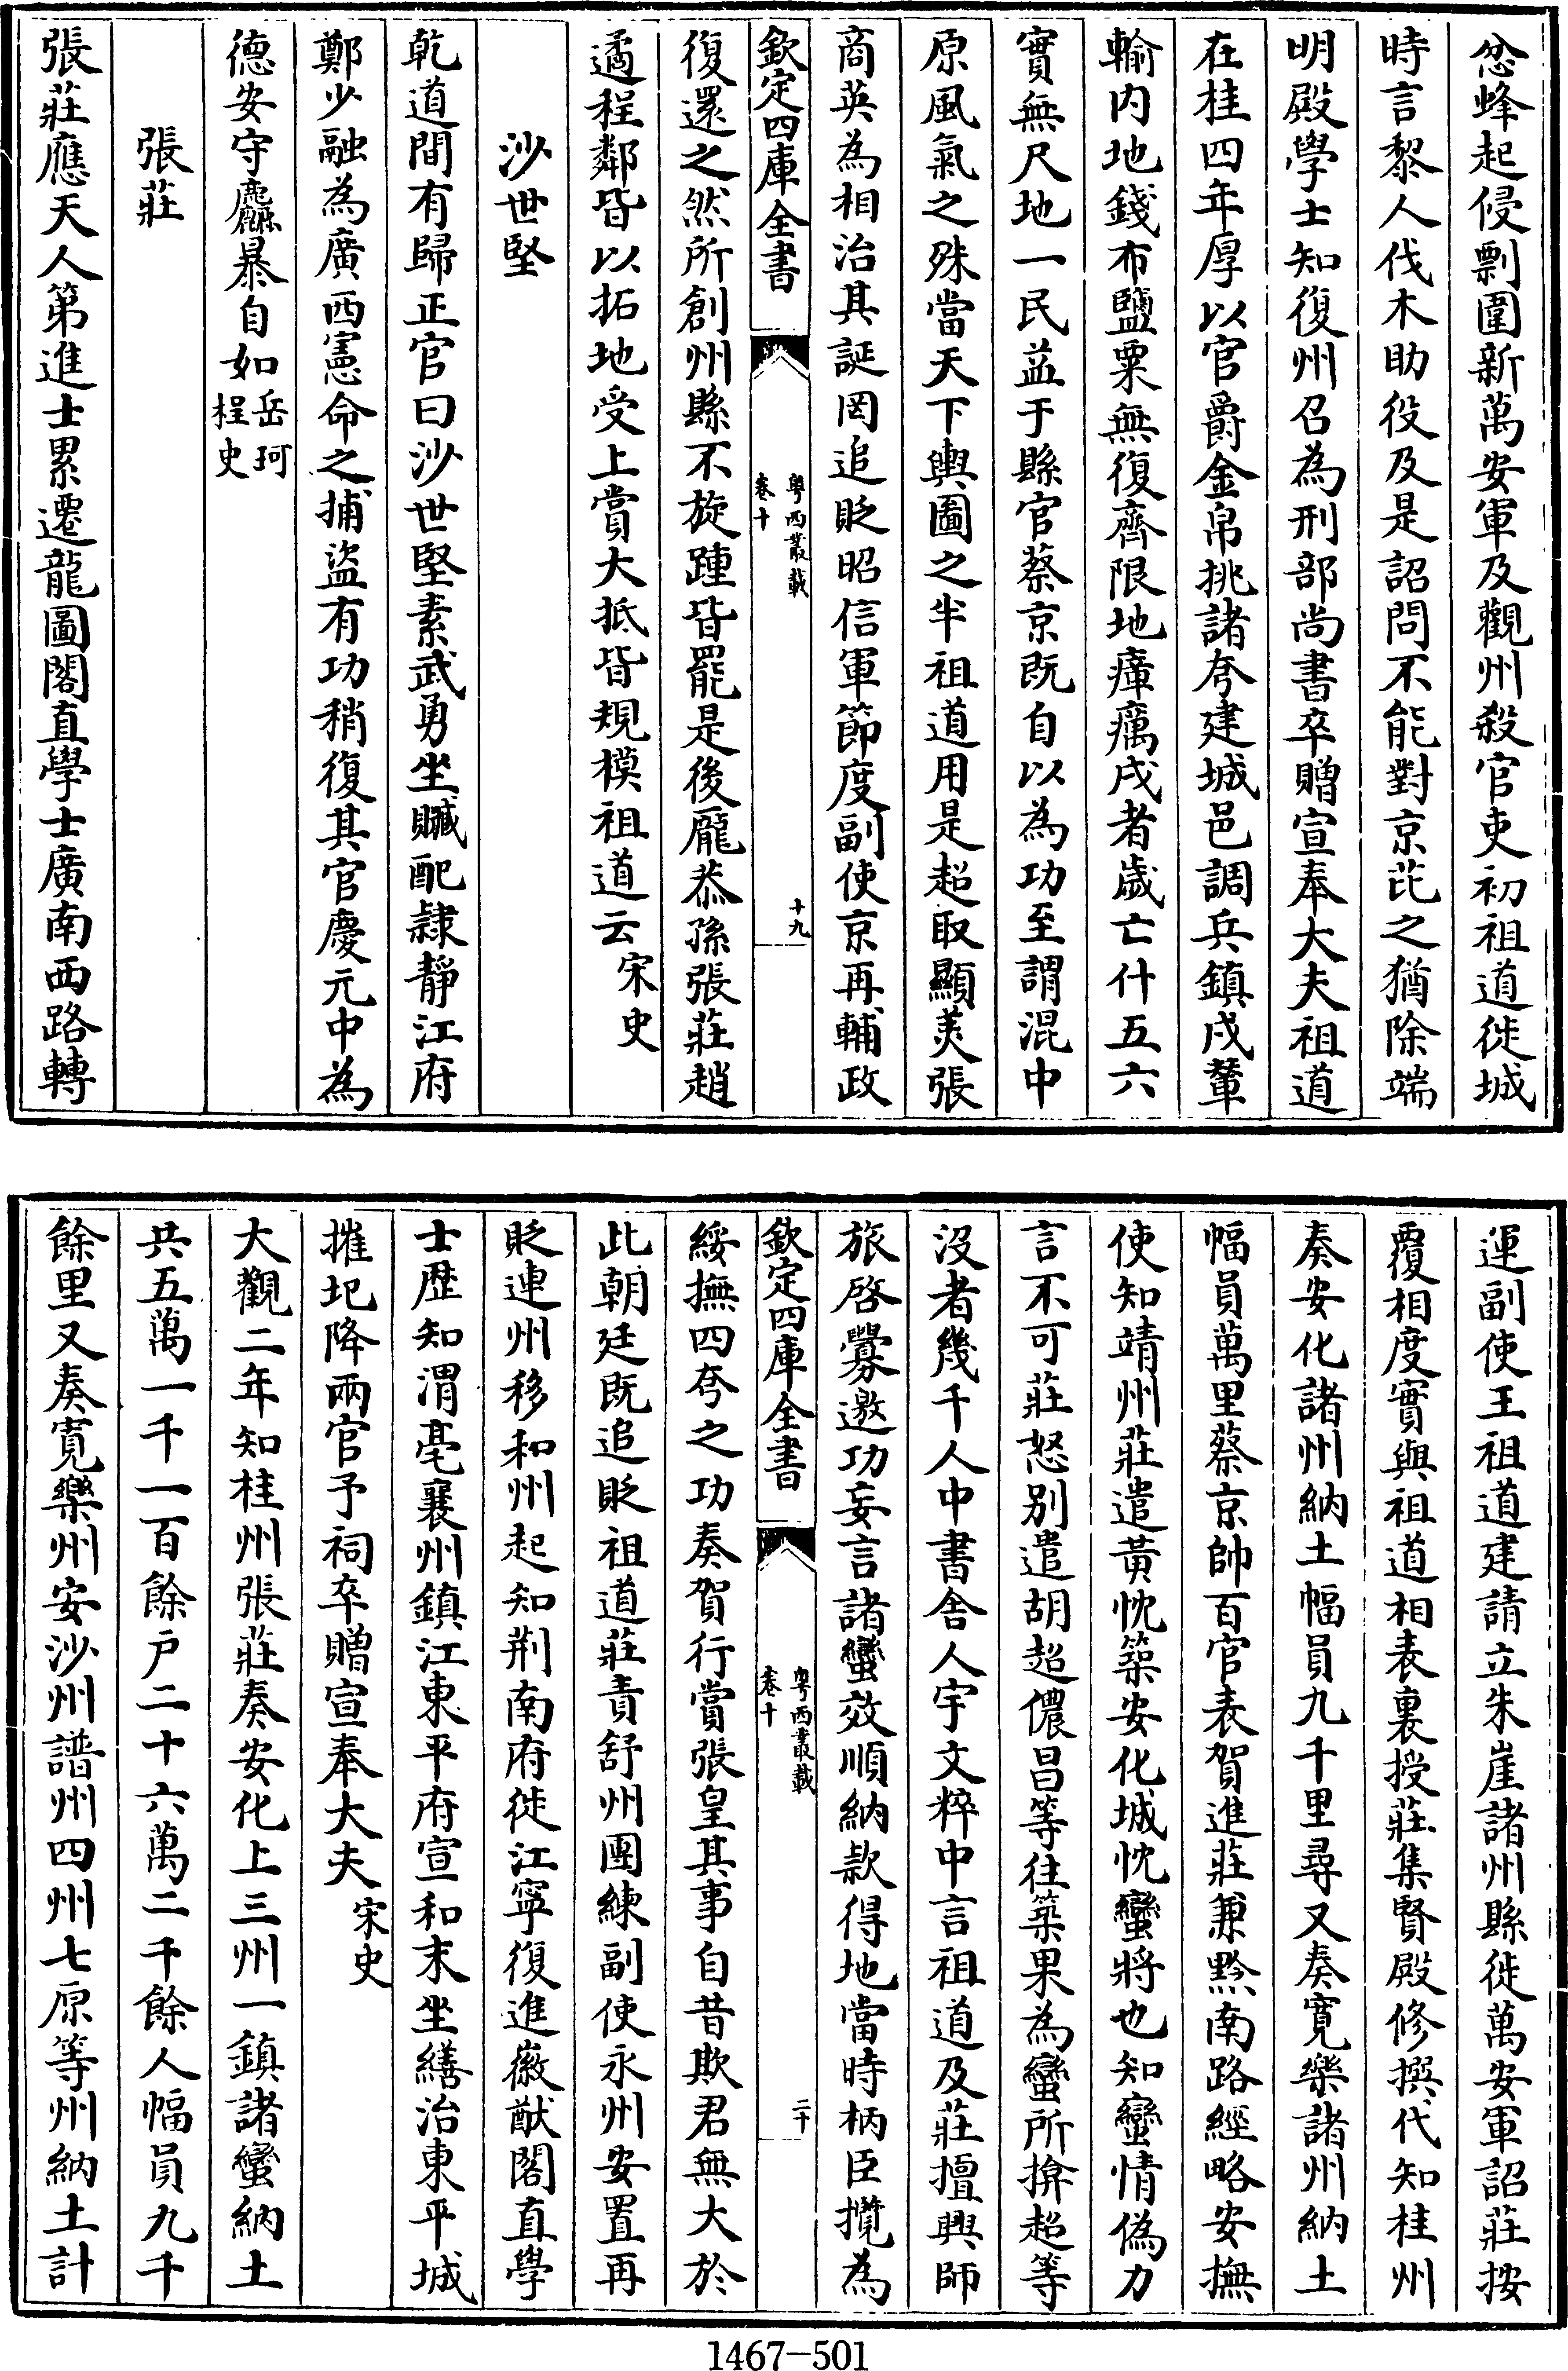 忿蜂起侵剽圍新萬安軍及觀州殺官吏初祖道徙城
時言黎人伐木助役及是詔問不能對京芘之猶除端
明殿學士知復州召為刑部尚書卒贈宣奉大夫祖道
在桂四年厚以官爵金帛挑諸夸建城邑調兵鎮戍輦
輸内地錢布鹽粟無復齊限地瘴癘戍者歲亡什五六
實無尺地一民益于縣官蔡京既自以為功至謂混中
原風氣之殊當天下輿圖之半祖道用是超取顯美張
商英為相治其誕罔追貶昭信軍節度副使京再輔政
欽定四庫全書
粤西叢載
卷十
十九
復還之然所創州縣不旋踵皆罷是後龎恭孫張莊趙
遹程鄰皆以拓地受上賞大抵皆規模祖道云宋史
沙世堅
乾道間有歸正官曰沙世堅素武勇坐贓配隷靜江府
鄭少融為廣西憲命之捕盜有功稍復其官慶元中為
德安守麤暴自如岳珂桯史
張莊
張莊應天人第進士累遷龍圖閣直學士廣南西路轉
運副使王祖道建請立朱崖諸州縣徙萬安軍詔莊按
覆相度實與祖道相表裏授莊集賢殿修撰代知桂州
奏安化諸州納土幅員九千里尋又奏寛樂諸州納土
幅員萬里蔡京帥百官表賀進莊兼黔南路經略安撫
使知靖州莊遣黄忱築安化城忱蠻將也知蠻情偽力
言不可莊怒别遣胡超儂昌等往築果為蠻所揜超等
没者幾千人中書舍人宇文粹中言祖道及莊擅興師
旅啓釁邀功妄言諸蠻效順納款得地當時柄臣攬為
欽定四庫全書
粤西叢載
卷十
二十
綏撫四夸之功奏賀行賞張皇其事自昔欺君無大於
此朝廷既追貶祖道莊責舒州團練副使永州安置再
貶連州移和州起知荆南府徙江寧復進徽猷閣直學
士歷知渭亳襄州鎮江東平府宣和末坐繕治東平城
摧圮降兩官予祠卒贈宣奉大夫宋史
大觀二年知桂州張莊奏安化上三州一鎮諸蠻納土
共五萬一千一百餘戶二十六萬二千餘人幅員九千
餘里又奏寛樂州安沙州譜州四州七原等州納土計
1467-501